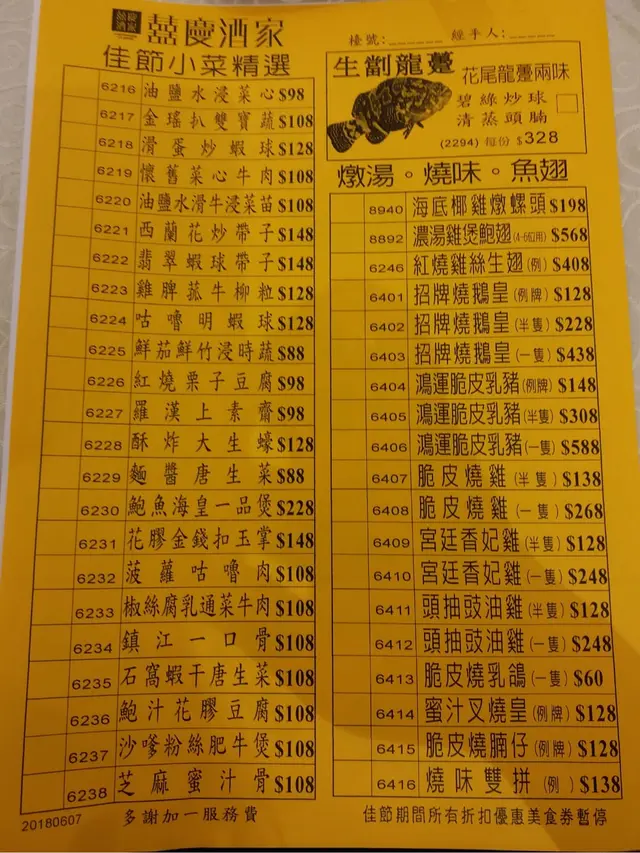 囍慶酒家
囍慶酒家
佳節小菜精選
6216 油鹽水浸菜心 $98
6217 金瑤扒雙寶蔬 $108
6218 滑蛋炒蝦球 $128
6219 懷舊菜心牛肉 $108
6220 油鹽水滑牛浸菜苗 $108
6221 西蘭花炒帶子 $148
6222 翡翠蝦球帶子 $148
6223 雞脾菰牛柳粒 $128
6224 咕嚕明蝦球 $128
6225 鮮茄鮮竹浸時蔬 $88
6226 紅燒栗子豆腐 $98
6227 羅漢上素齋 $98
6228 酥炸大生蠔 $128
6229 麵醬唐生菜 $88
6230 鮑魚海皇一品煲 $228
6231 花膠金錢扣玉掌 $148
6232 菠蘿咕嚕肉 $108
6233 椒絲腐乳通菜牛肉 $108
6234 鎮江一口骨 $108
6235 石窩蝦干唐生菜 $108
6236 鮑汁花膠豆腐 $108
6237 沙嗲粉絲肥牛煲 $108
6238 芝麻蜜汁骨 $108
20180607 多謝加一服務費
檯號:______ 經手人:______
生劏龍躉
花尾龍躉兩味
碧綠炒球
清蒸頭腩
(2294) 每份 $328
燉湯。燒味。魚翅
8940 海底椰雞燉螺頭 $198
8892 濃湯雞煲鮑翅(4-6位用) $568
6246 紅燒雞絲生翅(例) $408
6401 招牌燒鵝皇(例牌) $128
6402 招牌燒鵝皇(半隻) $228
6403 招牌燒鵝皇(一隻) $438
6404 鴻運脆皮乳豬(例牌) $148
6405 鴻運脆皮乳豬(半隻) $308
6406 鴻運脆皮乳豬(一隻) $588
6407 脆皮燒雞(半隻) $138
6408 脆皮燒雞(一隻) $268
6409 宮廷香妃雞(半隻) $128
6410 宮廷香妃雞(一隻) $248
6411 頭抽豉油雞(半隻) $128
6412 頭抽豉油雞(一隻) $248
6413 脆皮燒乳鴿(一隻) $60
6414 蜜汁叉燒皇(例牌) $128
6415 脆皮燒腩仔(例牌) $128
6416 燒味雙拼(例) $138
佳節期間所有折扣優惠美食券暫停